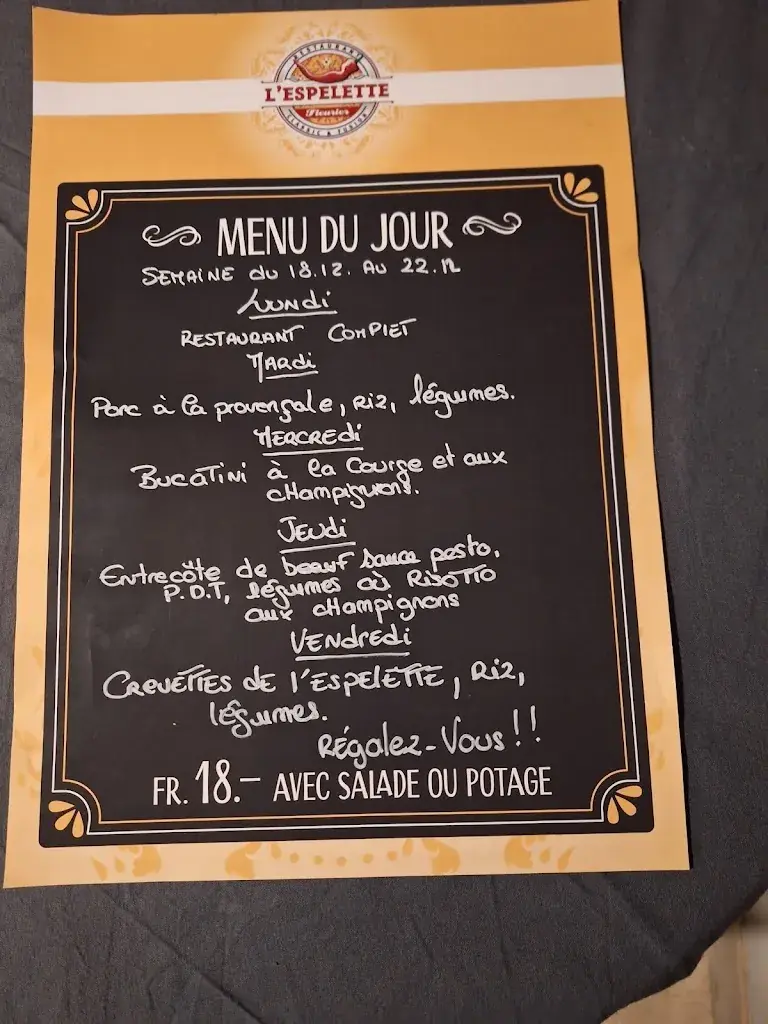 RESTAURANT
L'ESPELETTE
Fleurier
CLASSIC & FUSION
MENU DU JOUR
SEMAINE du 18.12. AU 22.12
LUNDI
RESTAURANT COMPLET
MARDI
Porc à la provençale, RIZ, légumes.
MERCREDI
BUCATINI à la Courge et aux
CHAMPIGNONS.
JEUDI
Entrecôte de boeuf sauce pesto,
P.D.T, légumes où RISOTTO
aux CHAMPIGNONS
VENDREDI
CREVETTES de l'ESPELETTE, RIZ,
légumes.
RÉGALEZ-VOUS!!
FR. 18.– AVEC SALADE OU POTAGE